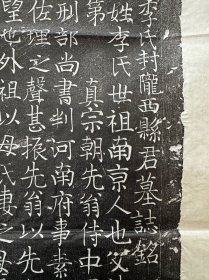 李氏封隴西縣君墓誌銘
姓李氏世祖南京人也父
第 真宗朝先翁侍中
刑部尚書判河南府事素
佐理之聲甚振先翁以先
望也外祖以母氏妻之母